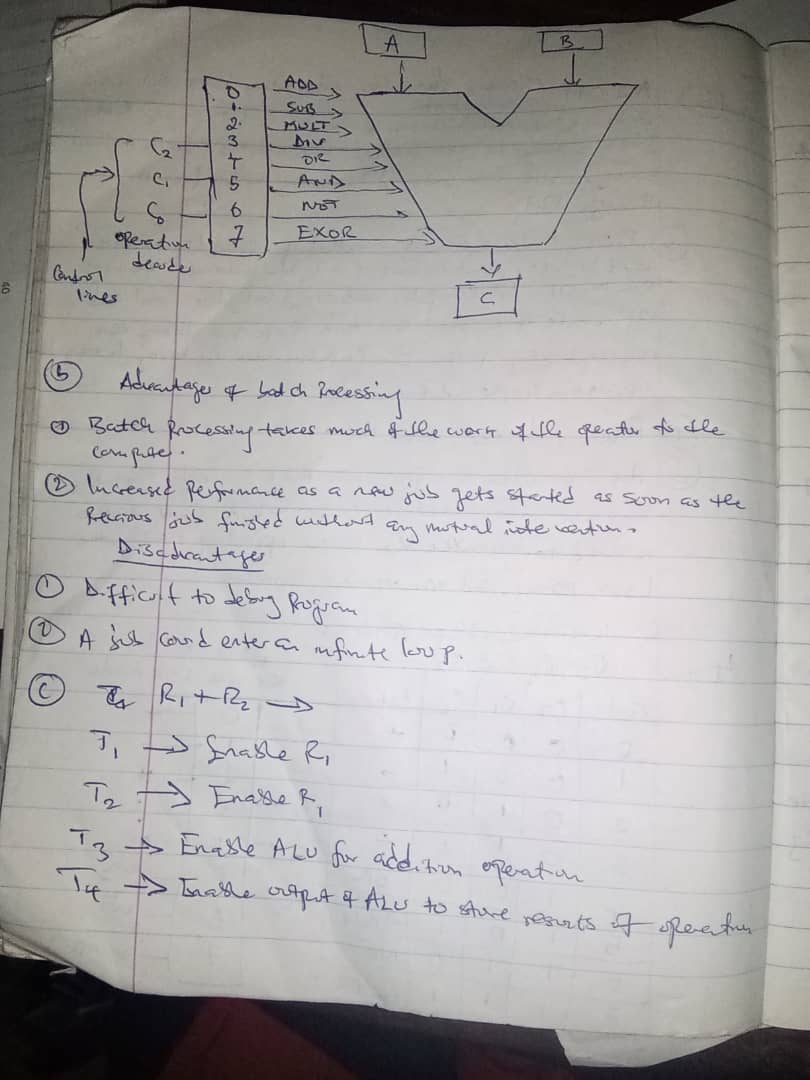 A B
0 ADD
1. SUB
2. MULT
C2 3 DIV
4 OR
C1 5 AND
C0 6 NOT
7 EXOR
operation
decode
Control
lines
C
(b) Advantages of batch Processing
① Batch Processing takes much of the work of the operator to the
computer.
② Increased Performance as a new job gets started as soon as the
Previous job finished without any
Disadvantages
① Difficult to debug Program
② A job could enter an infinite loop.
(C) R1 + R2 →
T1 → Enable R1
T2 → Enable R1
T3 → Enable ALU for addition operation
T4 → Enable output of ALU to store results of operation